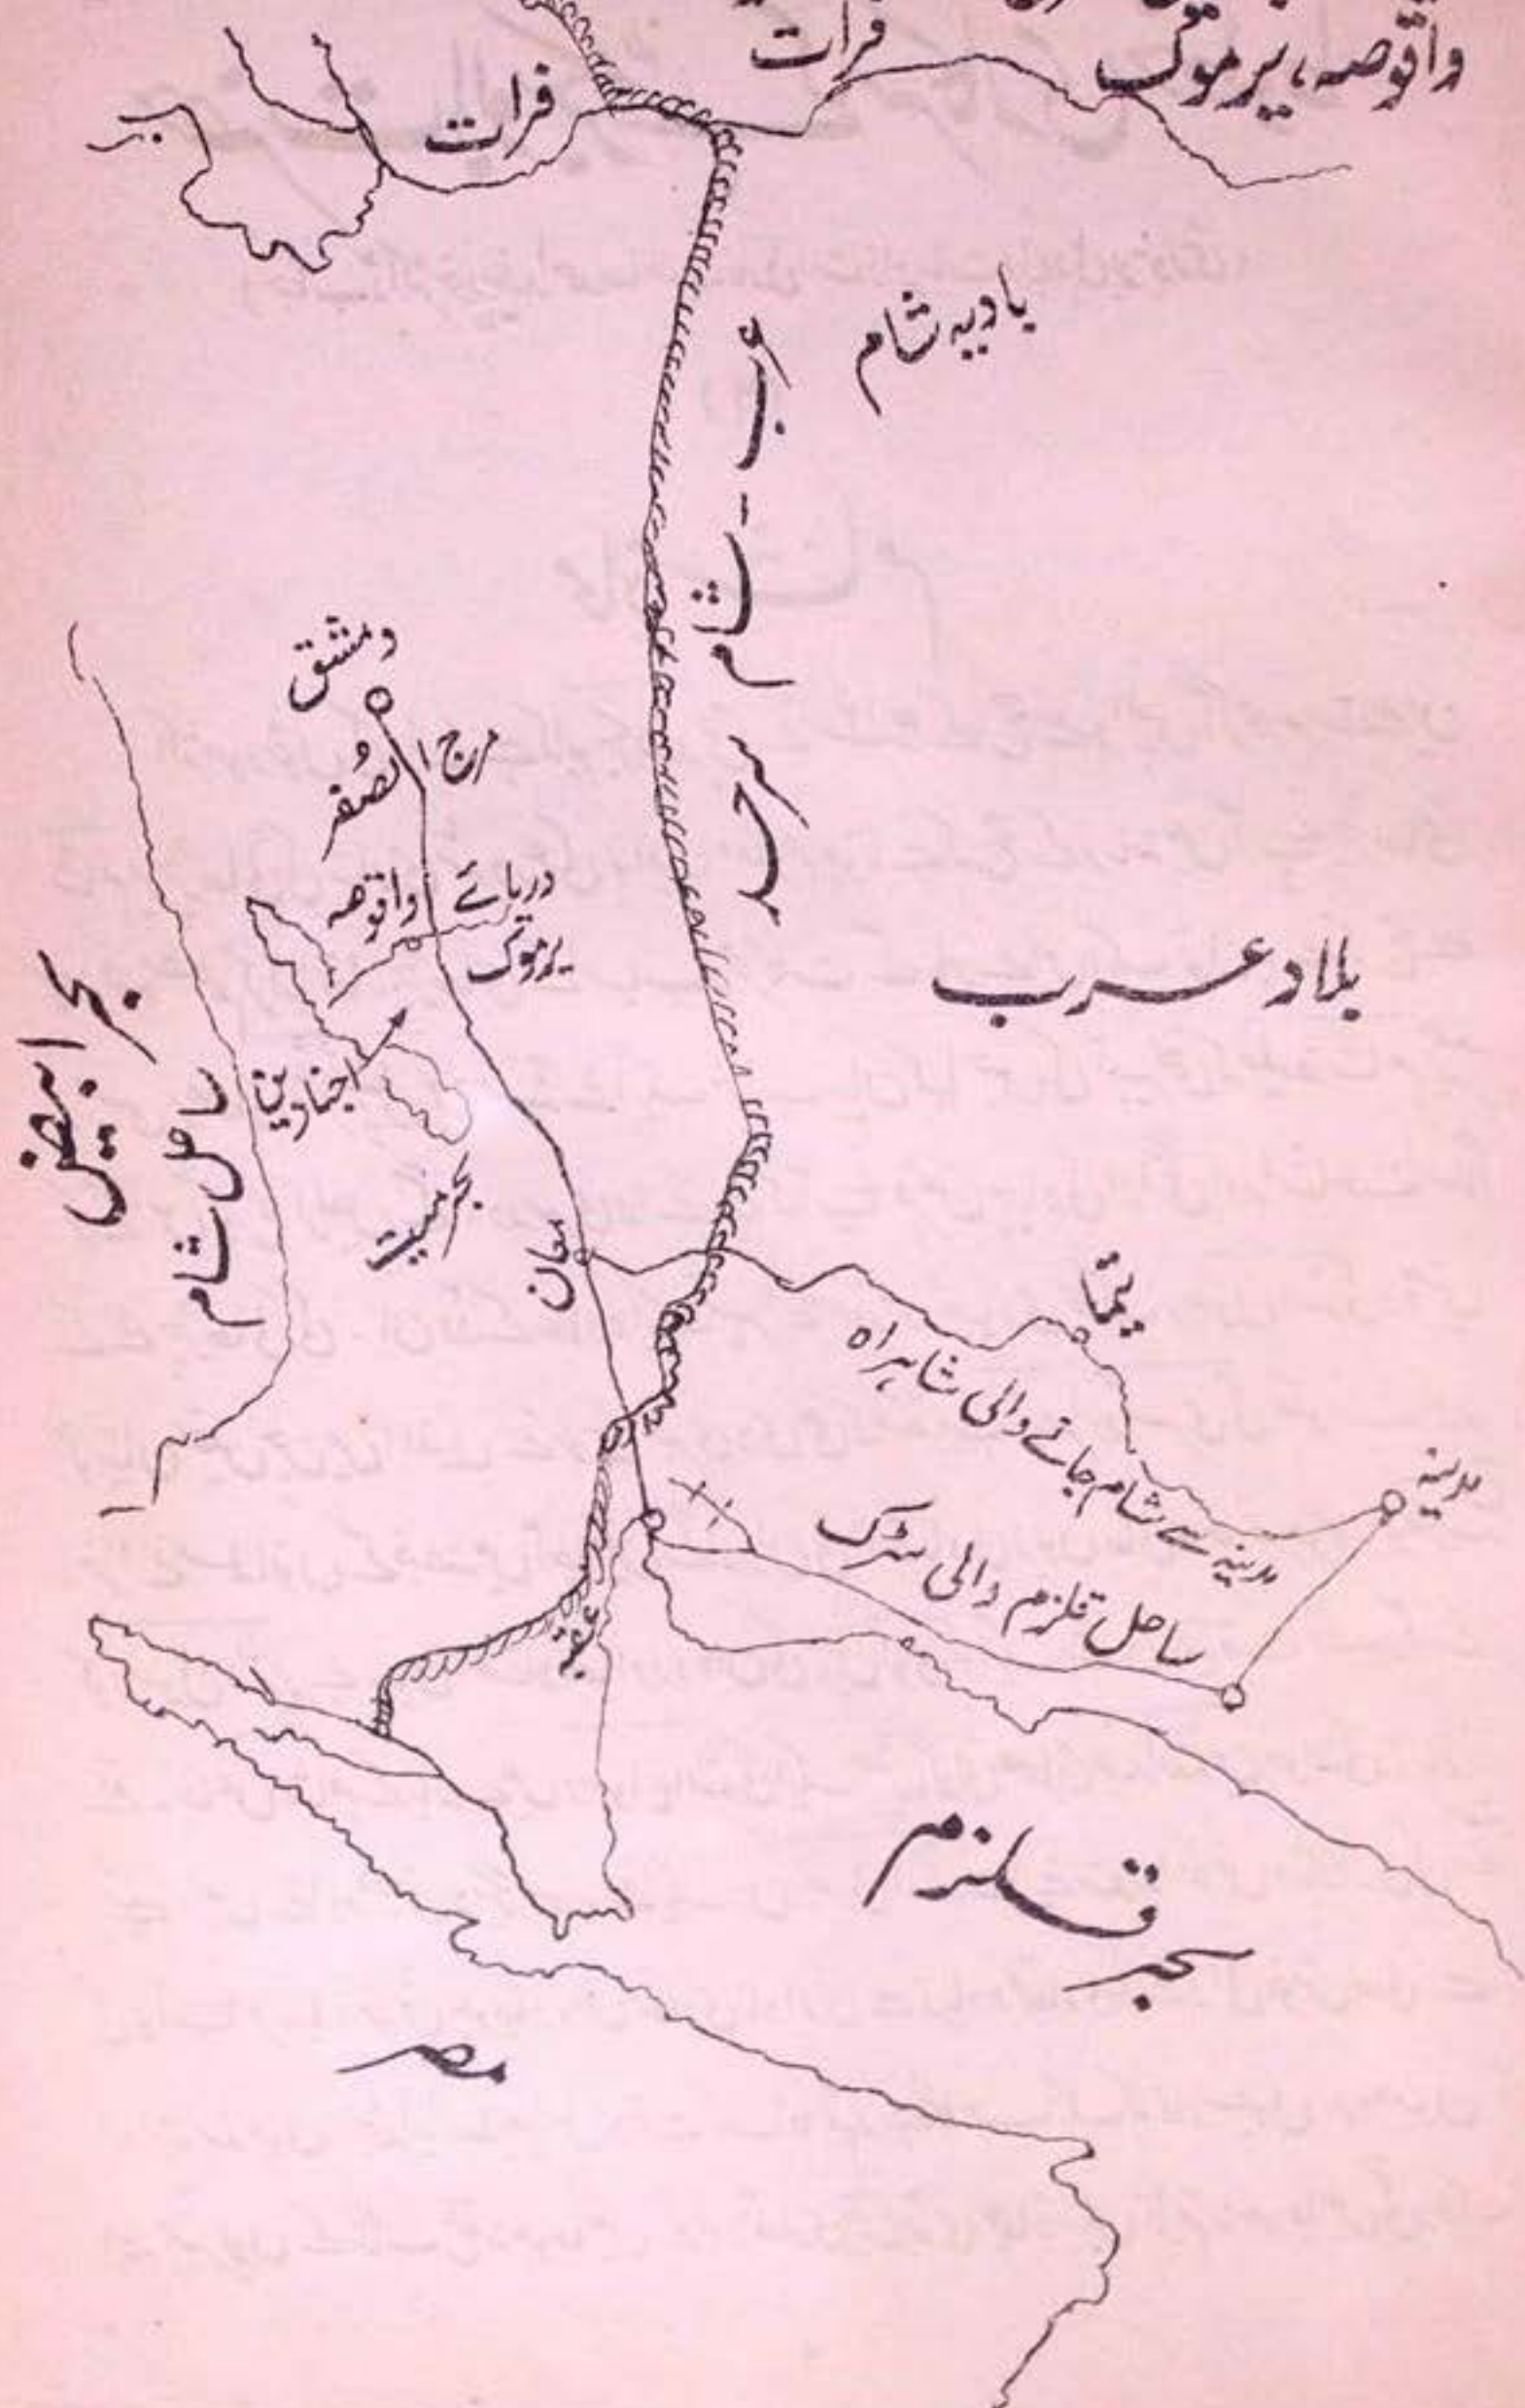 واقوصہ، یرموک
فرات
فرات
بادیہ شام
سرحد شام
دمشق
مرج الصُفر
دریائے یرموک
واقوصہ
بلاد عرب
بحر ابیض
ساحل شام
اجنادین
بحر میت
معان
مدینہ سے شام جانے والی شاہراہ
مدینہ
ساحل قلزم والی سڑک
عقبہ
بحر قلزم
مصر